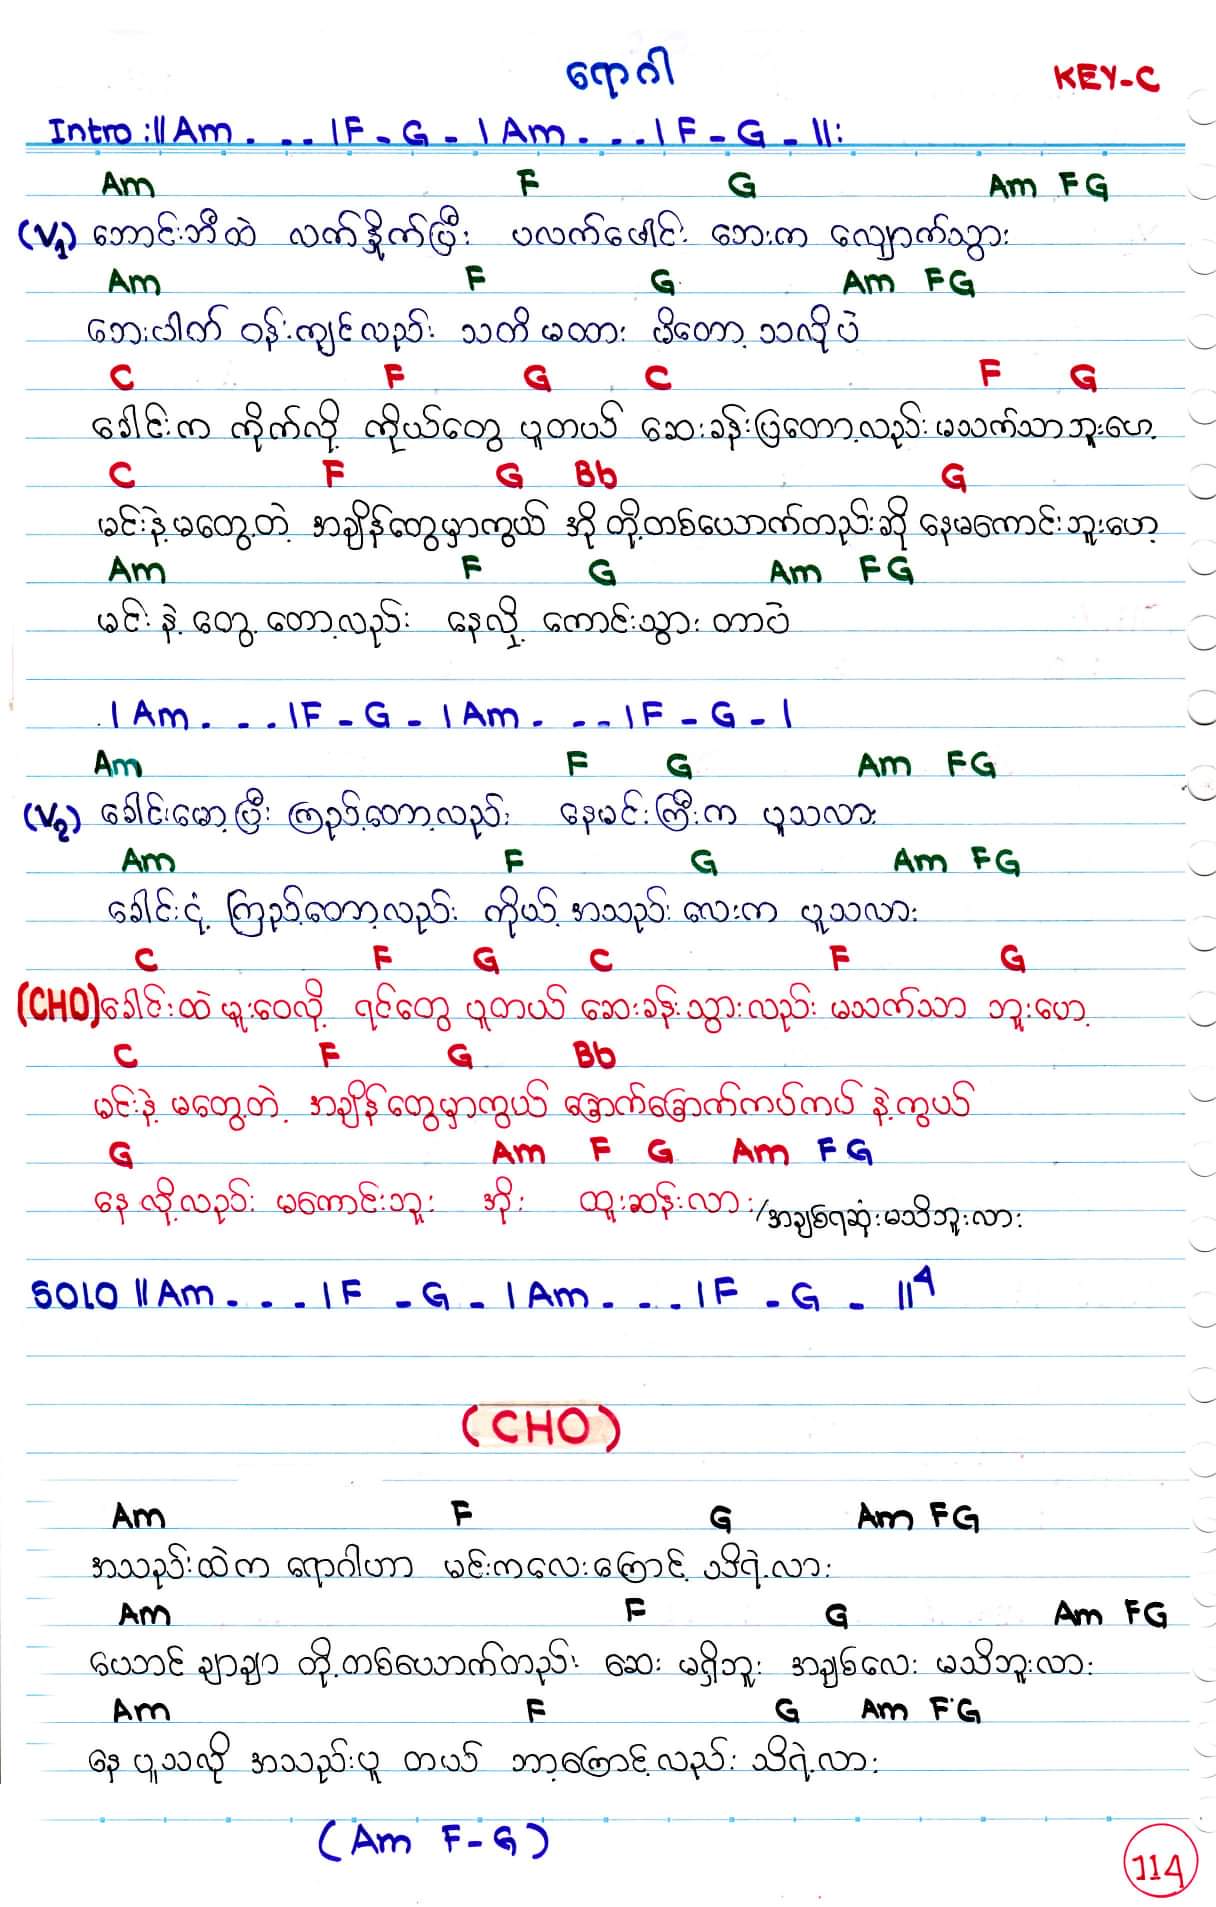 ရောဂါ
KEY-C
Intro :||Am . - - . |F - G - |Am . - - . |F - G - ||:
Am F G Am F G
(V1) ဘောင်းဘီထဲ လက်နှိုက်ပြီး ပလက်ဖောင်း ဘေးက လျှောက်သွား
Am F G Am F G
ဘေးပါက် ဝန်းကျင်လည်း သတိ မထား မိတော့ သလိုပဲ
C F G C F G
ခေါင်းက ကိုက်လို့ ကိုယ်တွေ ပူတယ် ဆေးခန်းပြတော့လည်း မသက်သာဘူးဟေ့
C F G Bb G
မင်းနဲ့မတွေ့တဲ့ အချိန်တွေမှာကွယ် အို တို့တစ်ယောက်တည်းဆို နေမကောင်းဘူးဟေ့
Am F G Am F G
မင်းနဲ့ တွေ့ တော့လည်း နေလို့ ကောင်းသွား တာပဲ
|Am . - - . |F - G - |Am . - - . |F - G - |
Am F G Am F G
(V2) ခေါင်းမော့ပြီး ကြည့်တော့လည်း နေမင်းကြီးက ပူသလား
Am F G Am F G
ခေါင်းငုံ့ ကြည့်တော့လည်း ကိုယ့် အသည်းလေးက ပူသလား
C F G C F G
(CHO) ခေါင်းထဲ မူးဝေလို့ ရင်တွေ ပူတယ် ဆေးခန်းသွားလည်း မသက်သာ ဘူးဟေ့
C F G Bb
မင်းနဲ့ မတွေ့တဲ့ အချိန်တွေမှာကွယ် ခြောက်ခြောက်ကပ်ကပ် နဲ့ကွယ်
G Am F G Am F G
နေ လို့လည်း မကောင်းဘူး အိုး ထူးဆန်းလား/အချစ်ရဆုံးမသိဘူးလား
SOLO ||Am . - - . |F - G - |Am . - - . |F - G - ||4
(CHO)
Am F G Am F G
အသည်းထဲက ရောဂါဟာ မင်းကလေးကြောင့် သိရဲ့လား
Am F G Am F G
ပေဘင် ချာချာ တို့တစ်ယောက်တည်း ဆေး မရှိဘူး အချစ်လေး မသိဘူးလား
Am F G Am F G
နေ ပူသလို အသည်းပူ တယ် ဘာ့ကြောင့်လည်း သိရဲ့လား
(Am F-G)
114